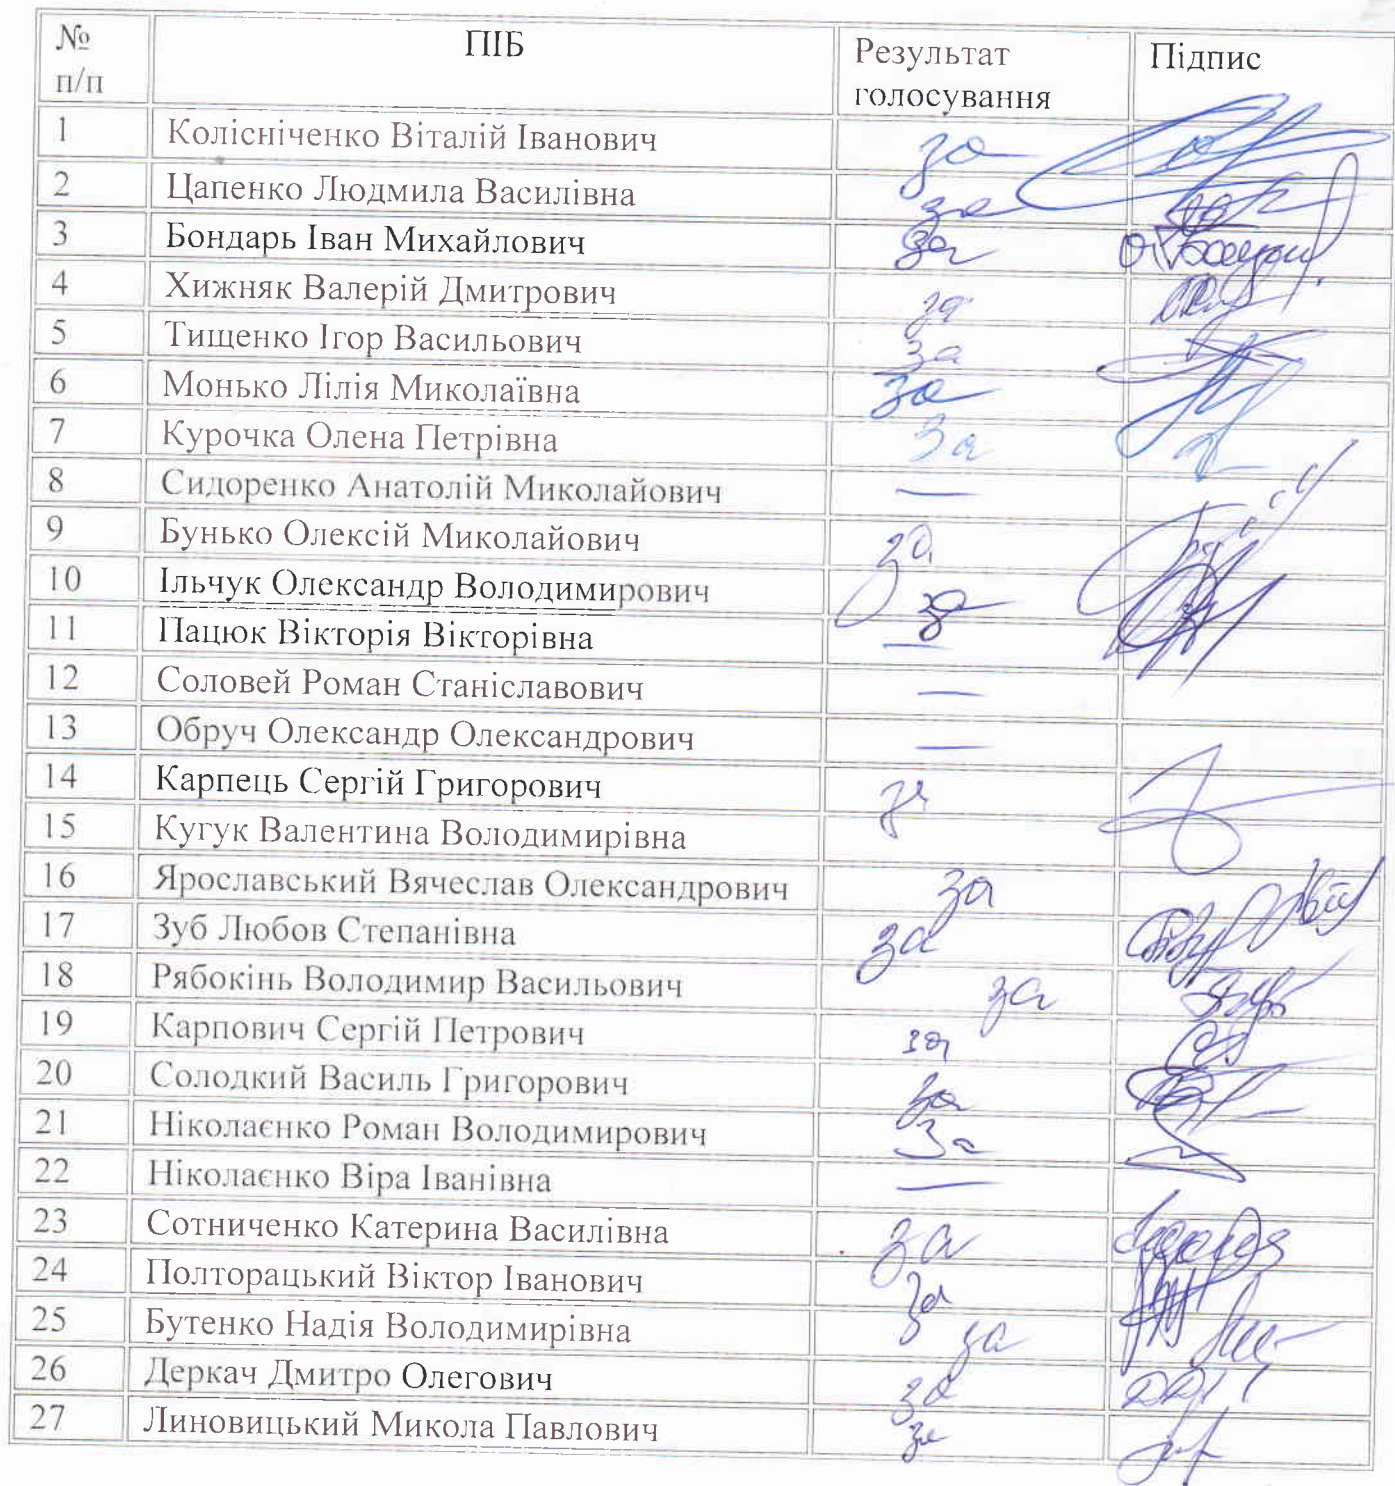 № п/п ПІБ Результат голосування Підпис
1 Колісніченко Віталій Іванович за
2 Цапенко Людмила Василівна за
3 Бондарь Іван Михайлович за
4 Хижняк Валерій Дмитрович за
5 Тищенко Ігор Васильович за
6 Монько Лілія Миколаївна за
7 Курочка Олена Петрівна За
8 Сидоренко Анатолій Миколайович —
9 Бунько Олексій Миколайович за
10 Ільчук Олександр Володимирович за
11 Пацюк Вікторія Вікторівна —
12 Соловей Роман Станіславович —
13 Обруч Олександр Олександрович —
14 Карпець Сергій Григорович за
15 Кугук Валентина Володимирівна
16 Ярославський Вячеслав Олександрович за
17 Зуб Любов Степанівна за
18 Рябокінь Володимир Васильович за
19 Карпович Сергій Петрович за
20 Солодкий Василь Григорович за
21 Ніколаєнко Роман Володимирович За
22 Ніколаєнко Віра Іванівна —
23 Сотниченко Катерина Василівна за
24 Полторацький Віктор Іванович за
25 Бутенко Надія Володимирівна за
26 Деркач Дмитро Олегович за
27 Линовицький Микола Павлович за